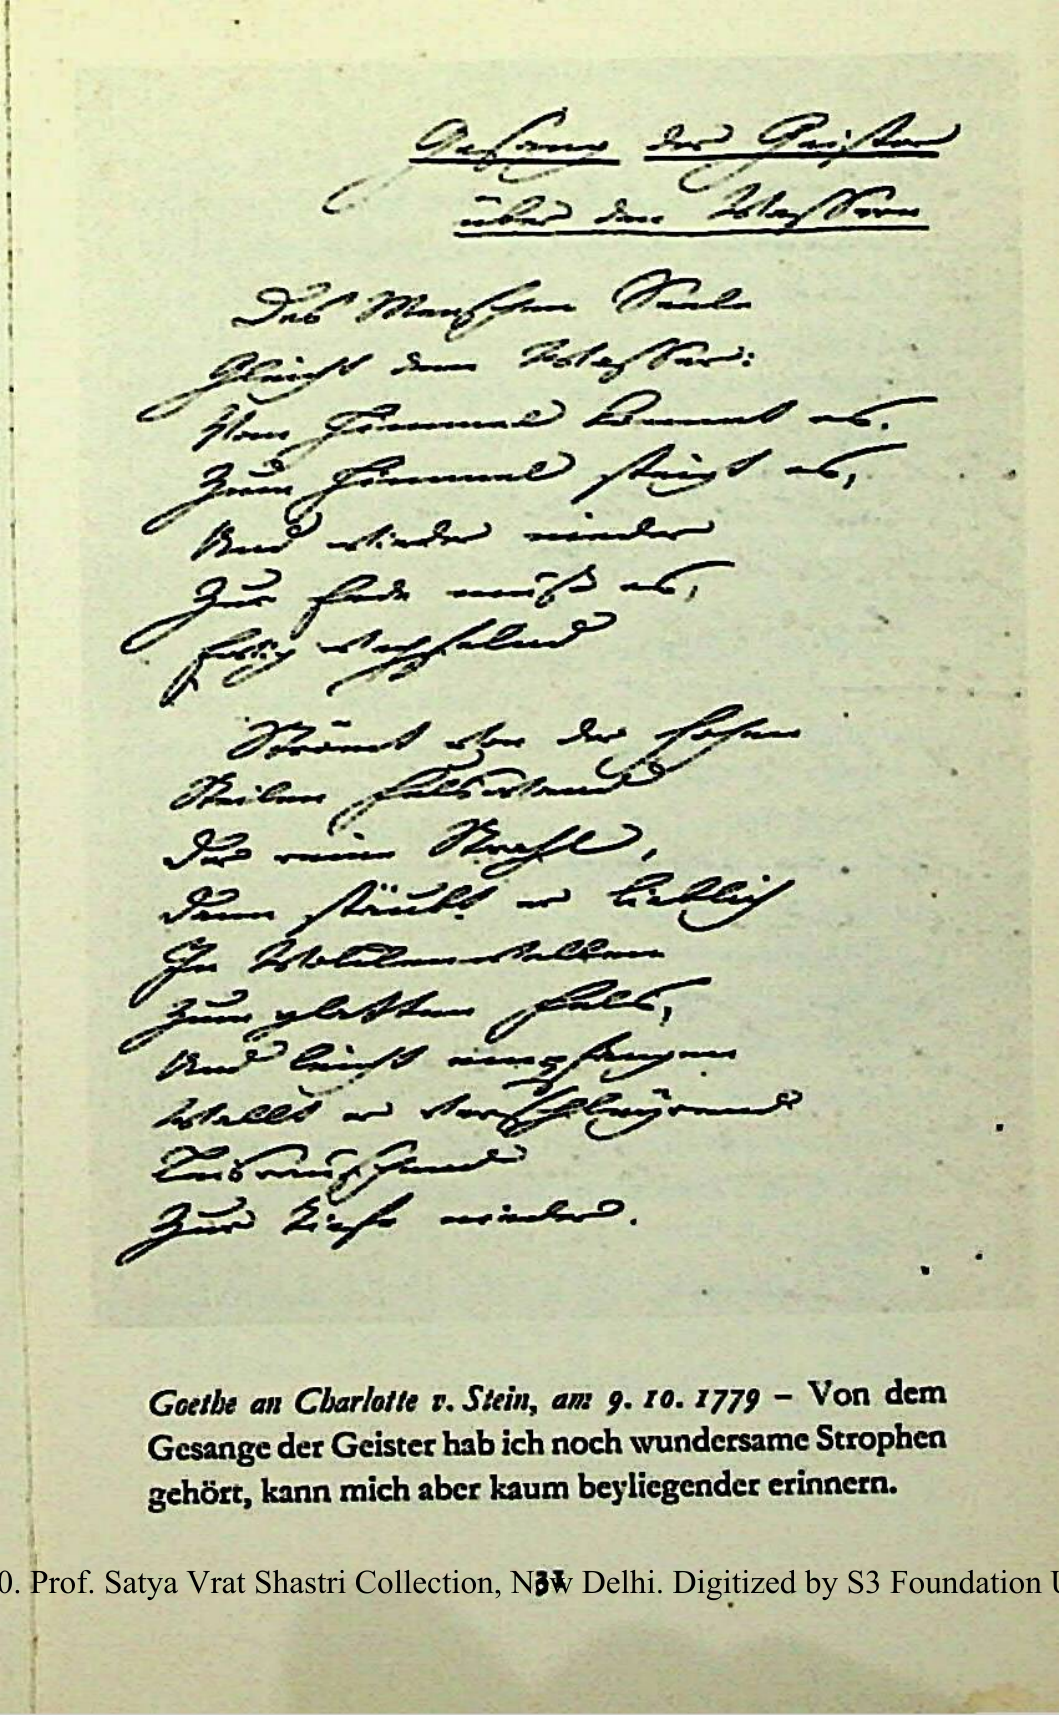 Gesang der Geister
über den Wassern
Des Menschen Seele
Gleicht dem Wasser:
Vom Himmel kommt es,
Zum Himmel steigt es,
Und wieder nieder
Zur Erde muß es,
Ewig wechselnd
Strömt von der hohen
Steilen Felswand
Der reine Strahl,
Dann stäubt er lieblich
In Wolkenwellen
Zum glatten Fels,
Und leicht empfangen
Wallt er verschleyrend
Leisrauschend
Zur Tiefe nieder.
Goethe an Charlotte v. Stein, am 9. 10. 1779 – Von dem
Gesange der Geister hab ich noch wundersame Strophen
gehört, kann mich aber kaum beyliegender erinnern.
0. Prof. Satya Vrat Shastri Collection, New Delhi. Digitized by S3 Foundation U